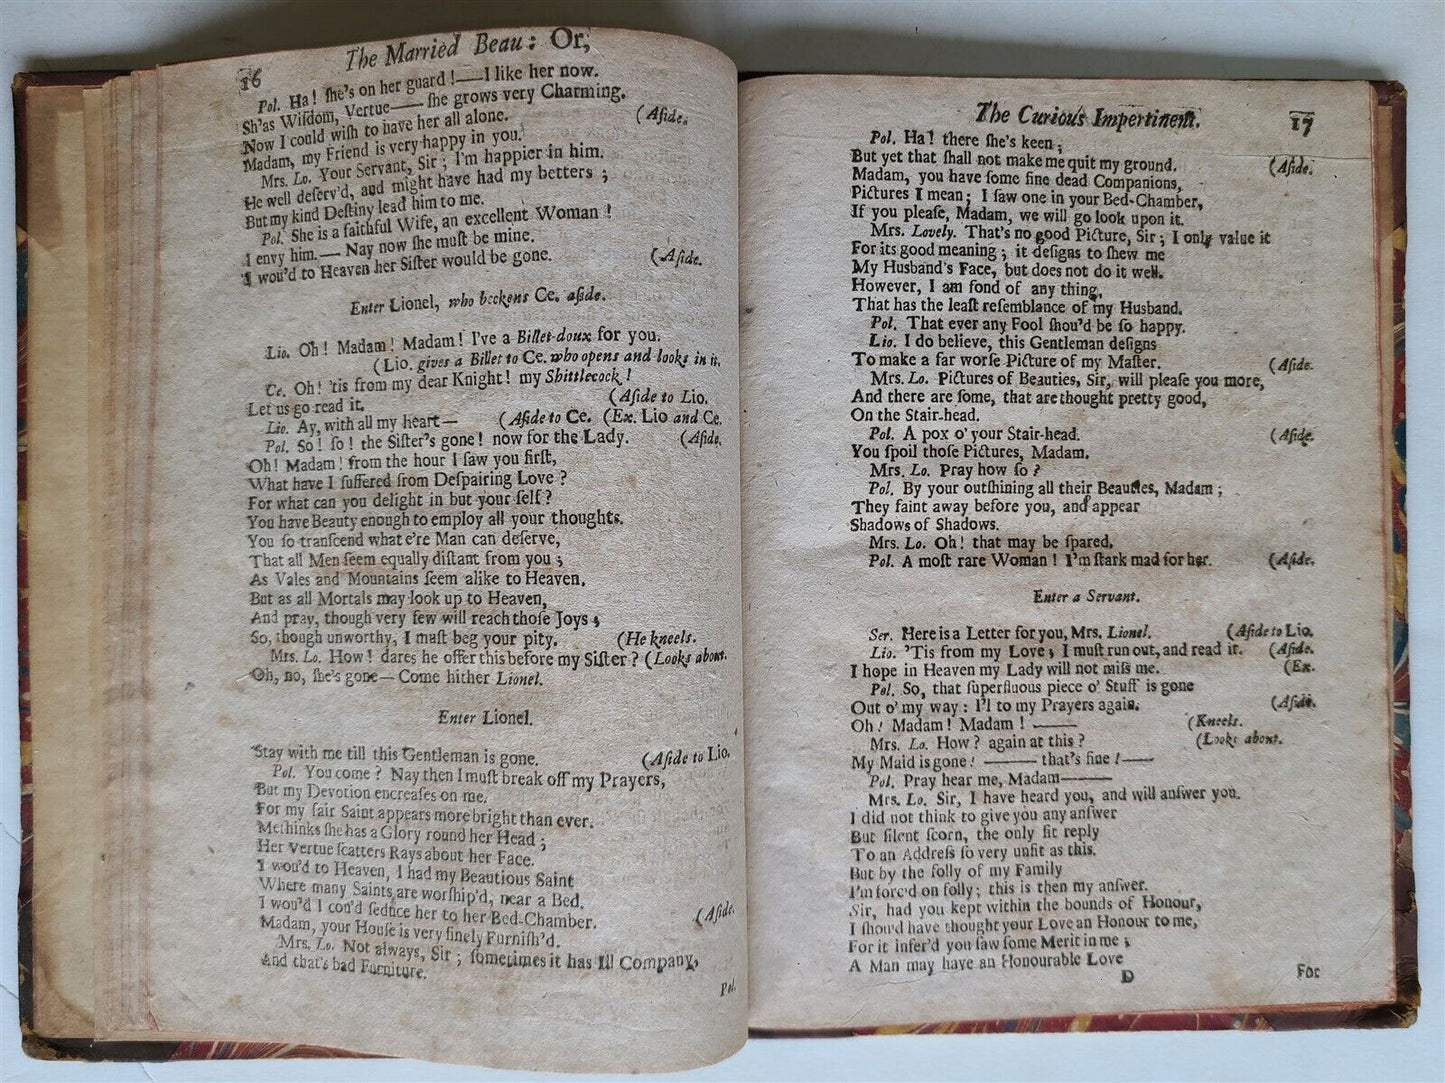 16
The Married Beau: Or,
Pol. Ha! ſhe's on her guard!——I like her now.
Sh'as Wiſdom, Vertue—— ſhe grows very Charming.
Now I could wiſh to have her all alone. (Aſide.
Madam, my Friend is very happy in you.
Mrs. Lo. Your Servant, Sir; I'm happier in him.
He well deſerv'd, and might have had my betters;
But my kind Deſtiny lead him to me.
Pol. She is a faithful Wife, an excellent Woman!
I envy him.— Nay now ſhe muſt be mine.
I wou'd to Heaven her Siſter would be gone. (Aſide.
Enter Lionel, who beckens Ce. aſide.
Lio. Oh! Madam! Madam! I've a Billet-doux for you.
(Lio. gives a Billet to Ce. who opens and looks in it.
Ce. Oh! 'tis from my dear Knight! my Shittlecock!
Let us go read it. (Aſide to Lio.
Lio. Ay, with all my heart— (Aſide to Ce. (Ex. Lio and Ce.
Pol. So! ſo! the Siſter's gone! now for the Lady. (Aſide.
Oh! Madam! from the hour I ſaw you firſt,
What have I ſuffered from Deſpairing Love?
For what can you delight in but your ſelf?
You have Beauty enough to employ all your thoughts.
You ſo tranſcend what e're Man can deſerve,
That all Men ſeem equally diſtant from you;
As Vales and Mountains ſeem alike to Heaven.
But as all Mortals may look up to Heaven,
And pray, though very few will reach thoſe Joys;
So, though unworthy, I muſt beg your pity. (He kneels.
Mrs. Lo. How! dares he offer this before my Siſter? (Looks about.
Oh, no, ſhe's gone— Come hither Lionel.
Enter Lionel.
Stay with me till this Gentleman is gone. (Aſide to Lio.
Pol. You come? Nay then I muſt break off my Prayers,
But my Devotion encreaſes on me.
For my fair Saint appears more bright than ever.
Methinks ſhe has a Glory round her Head;
Her Vertue ſcatters Rays about her Face.
I wou'd to Heaven, I had my Beautious Saint
Where many Saints are worſhip'd, near a Bed.
I wou'd I cou'd ſeduce her to her Bed-Chamber. (Aſide.
Madam, your Houſe is very finely Furniſh'd.
Mrs. Lo. Not always, Sir; ſometimes it has Ill Company,
And that's bad Furniture.
Pol.
The Curious Impertinent. 17
Pol. Ha! there ſhe's keen;
But yet that ſhall not make me quit my ground. (Aſide.
Madam, you have ſome fine dead Companions,
Pictures I mean; I ſaw one in your Bed-Chamber,
If you pleaſe, Madam, we will go look upon it.
Mrs. Lovely. That's no good Picture, Sir; I only value it
For its good meaning; it deſigns to ſhew me
My Husband's Face, but does not do it well.
However, I am fond of any thing,
That has the leaſt reſemblance of my Husband.
Pol. That ever any Fool ſhou'd be ſo happy.
Lio. I do believe, this Gentleman deſigns
To make a far worſe Picture of my Maſter. (Aſide.
Mrs. Lo. Pictures of Beauties, Sir, will pleaſe you more,
And there are ſome, that are thought pretty good,
On the Stair-head.
Pol. A pox o' your Stair-head. (Aſide.
You ſpoil thoſe Pictures, Madam.
Mrs. Lo. Pray how ſo?
Pol. By your outſhining all their Beauties, Madam;
They faint away before you, and appear
Shadows of Shadows.
Mrs. Lo. Oh! that may be ſpared,
Pol. A moſt rare Woman! I'm ſtark mad for her. (Aſide.
Enter a Servant.
Ser. Here is a Letter for you, Mrs. Lionel. (Aſide to Lio.
Lio. 'Tis from my Love; I muſt run out, and read it. (Aſide.
I hope in Heaven my Lady will not miſs me. (Ex.
Pol. So, that ſuperfluous piece o' Stuff is gone
Out o' my way: I'l to my Prayers again. (Aſide.
Oh! Madam! Madam! —— (Kneels.
Mrs. Lo. How? again at this? (Looks about.
My Maid is gone! —— that's fine!——
Pol. Pray hear me, Madam——
Mrs. Lo. Sir, I have heard you, and will anſwer you.
I did not think to give you any anſwer
But ſilent ſcorn, the only fit reply
To an Addreſs ſo very unfit as this.
But by the folly of my Family
I'm forc'd on folly; this is then my anſwer.
Sir, had you kept within the bounds of Honour,
I ſhou'd have thought your Love an Honour to me,
For it infer'd you ſaw ſome Merit in me;
A Man may have an Honourable Love
D For